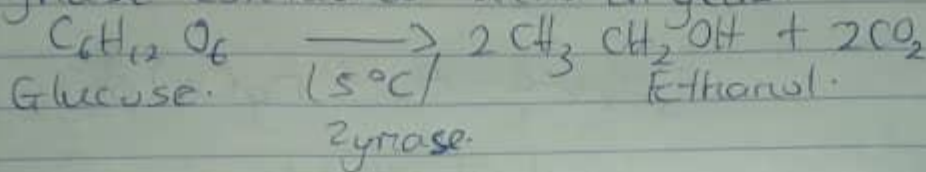 C6H12O6 ⟶ 2CH3CH2OH + 2CO2
Glucose. (15°C) Ethanol.
Zymase.